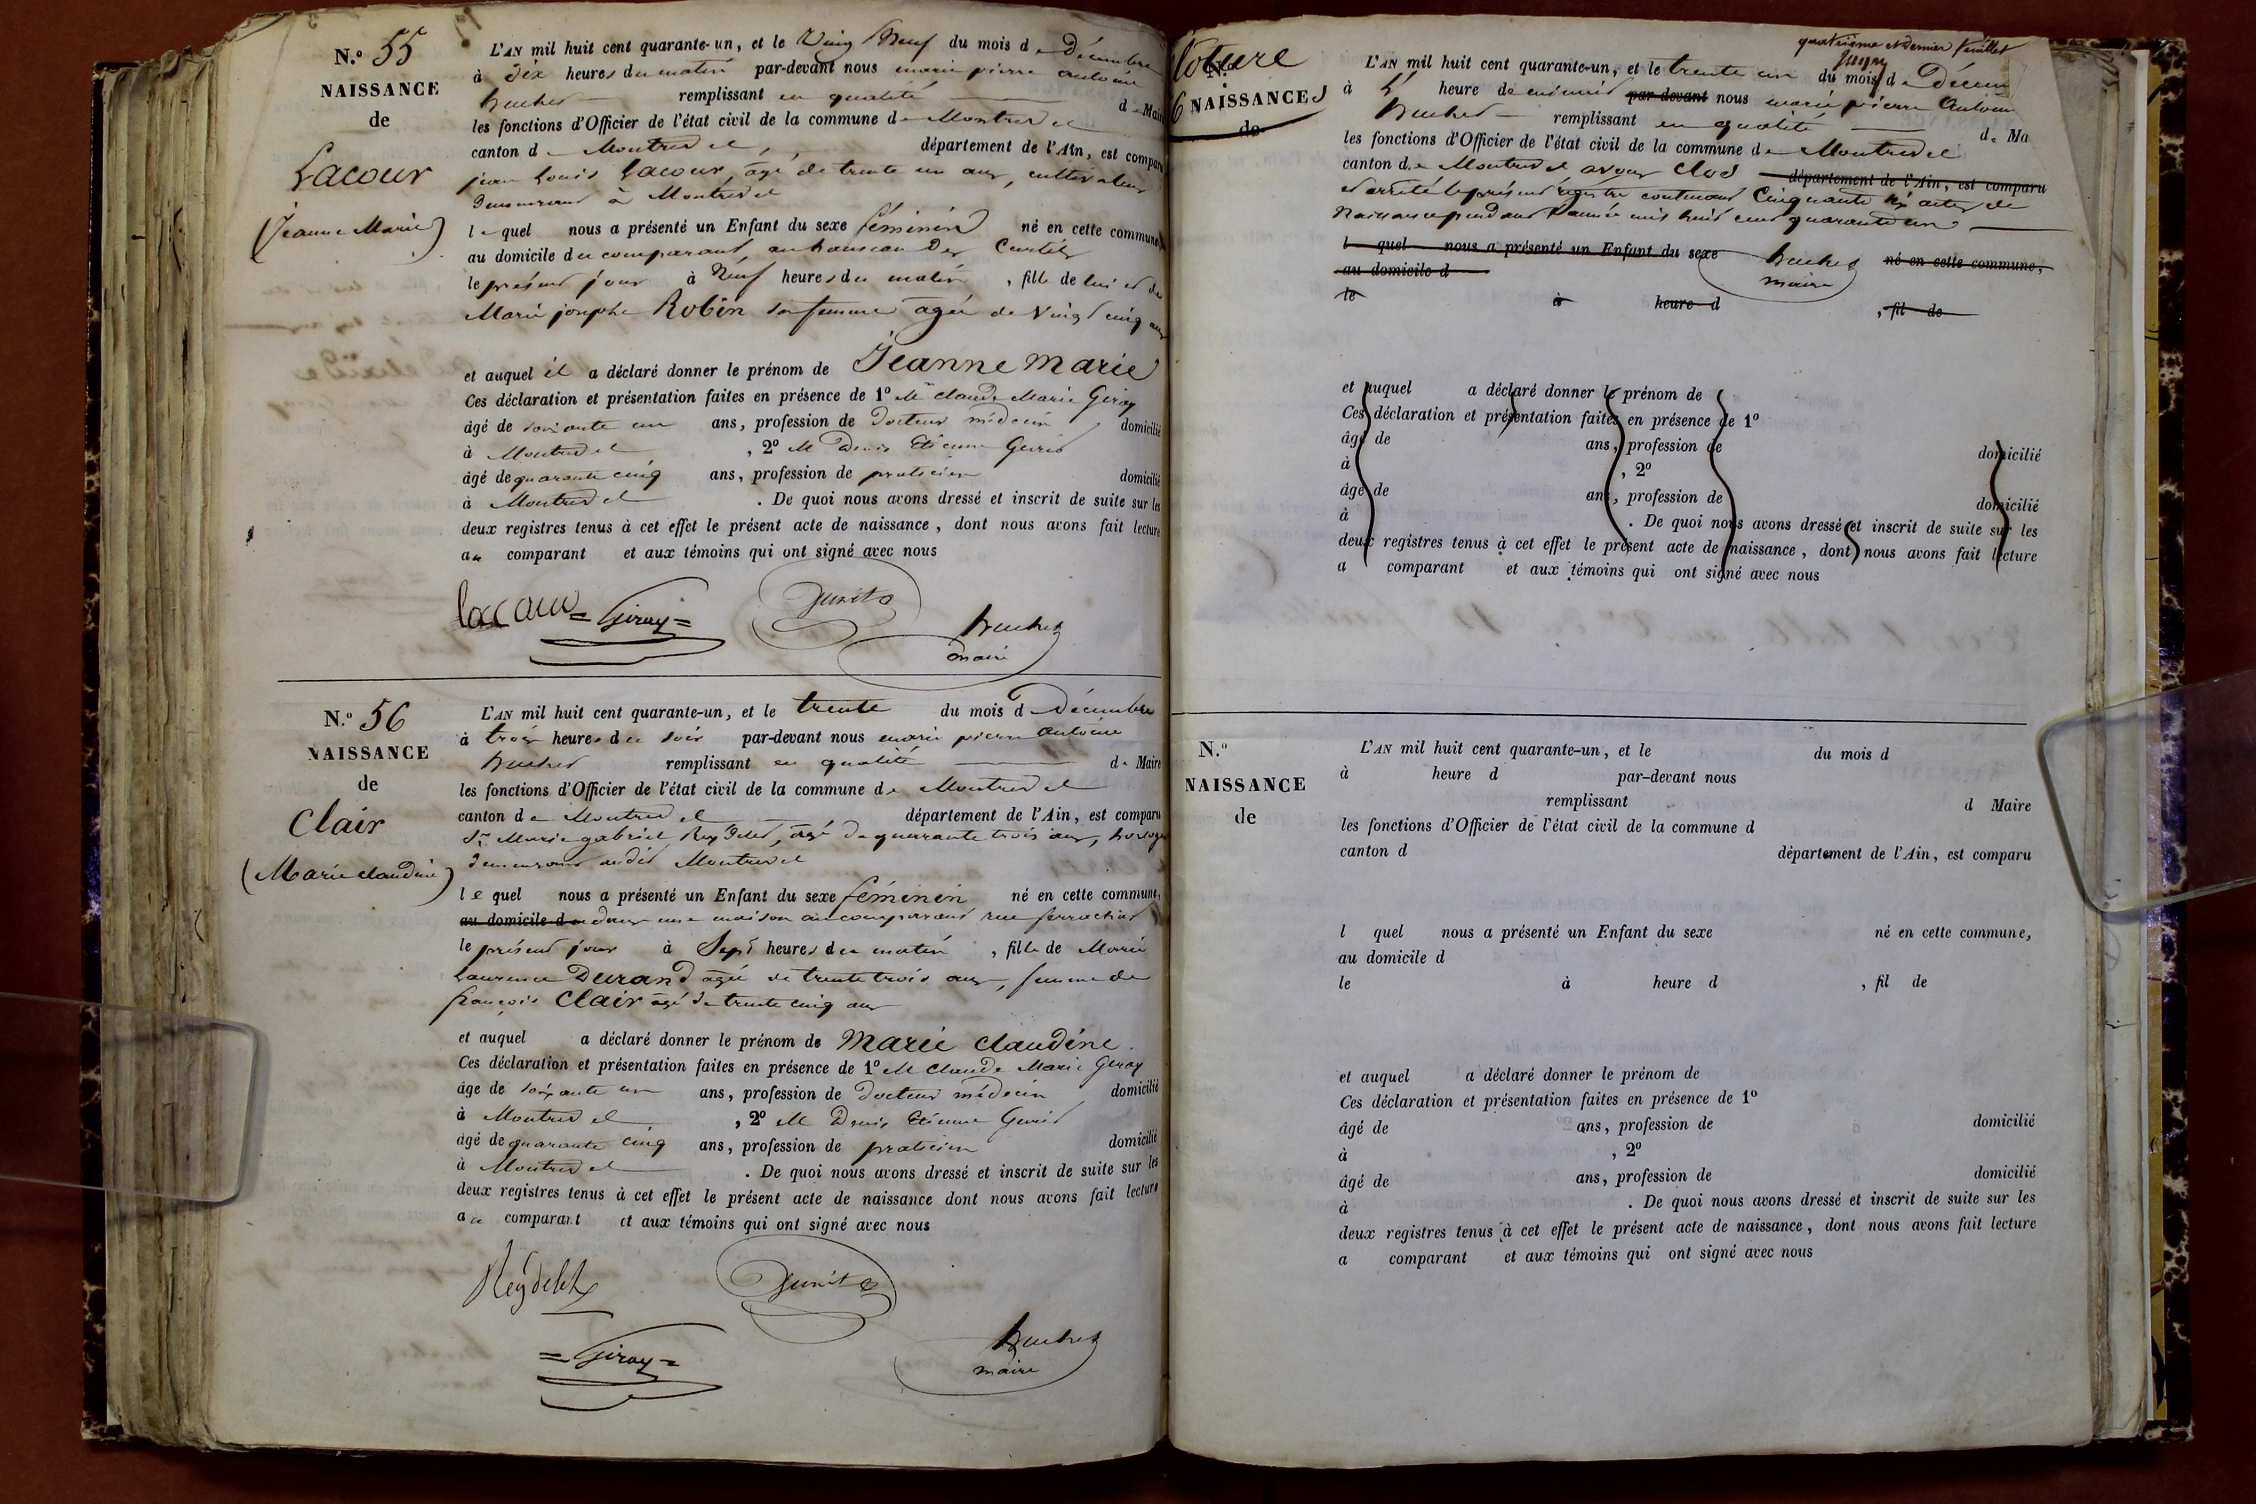 N.º 55
NAISSANCE
de
Lacour
(Jeanne Marie)
L'AN mil huit cent quarante-un, et le Vingt Neuf du mois de Décembre
à dix heures du matin par-devant nous marie pierre antoine
remplissant en qualité de Maire
les fonctions d'Officier de l'état civil de la commune de Montrevel
canton de Montrevel, département de l'Ain, est comparu
jean Louis Lacour, agé de trente un ans, cultivateur
demeurant à Montrevel
lequel nous a présenté un Enfant du sexe féminin né en cette commune,
au domicile du comparant, au hameau des Curtils
le présent jour à Neuf heures du matin, fille de lui et de
Marie josephe Robin sa femme agée de vingt cinq ans
et auquel il a déclaré donner le prénom de Jeanne Marie
Ces déclaration et présentation faites en présence de 1º Mr Claude Marie Giroy
âgé de soixante un ans, profession de docteur médecin domicilié
à Montrevel, 2º M Denis Etienne
âgé de quarante cinq ans, profession de praticien domicilié
à Montrevel. De quoi nous avons dressé et inscrit de suite sur les
deux registres tenus à cet effet le présent acte de naissance, dont nous avons fait lecture
au comparant et aux témoins qui ont signé avec nous
Lacour =Giroy=
maire
N.º 56
NAISSANCE
de
Clair
(Marie claudine)
L'AN mil huit cent quarante-un, et le trente du mois d Décembre
à trois heures du soir par-devant nous marie pierre antoine
remplissant en qualité de Maire
les fonctions d'Officier de l'état civil de la commune de Montrevel
canton de Montrevel département de l'Ain, est comparu
Sr. Marie gabriel Reydelet, agé de quarante trois ans, horloger
demeurant audit Montrevel
lequel nous a présenté un Enfant du sexe féminin né en cette commune,
au domicile d dans une maison au comparant rue
le présent jour à Sept heures du matin, fille de Marie
Laurence Durand agée de trente trois ans, femme de
françois Clair agé de trente cinq ans
et auquel a déclaré donner le prénom de Marie claudine
Ces déclaration et présentation faites en présence de 1º M Claude Marie Giroy
âgé de soixante un ans, profession de docteur médecin domicilié
à Montrevel, 2º M Denis Etienne
âgé de quarante cinq ans, profession de praticien domicilié
à Montrevel. De quoi nous avons dressé et inscrit de suite sur les
deux registres tenus à cet effet le présent acte de naissance dont nous avons fait lecture
au comparant et aux témoins qui ont signé avec nous
Reydelet
=Giroy=
maire
quatrième et dernier feuillet
N.º
NAISSANCES
de
L'AN mil huit cent quarante-un, et le trente un du mois de Décem
à heure de par-devant nous marie pierre Antoine
remplissant en qualité de Ma
les fonctions d'Officier de l'état civil de la commune de Montrevel
canton de Montrevel avons clos département de l'Ain, est comparu
et arrêté le présent régistre contenant Cinquante six actes de
Naissances pendant l'année mil huit cent quarante un
l quel nous a présenté un Enfant du sexe né en cette commune,
au domicile d
maire
le à heure d , fil de
et auquel a déclaré donner le prénom de
Ces déclaration et présentation faites en présence de 1º
âgé de ans, profession de domicilié
à , 2º
âgé de ans, profession de domicilié
à . De quoi nous avons dressé et inscrit de suite sur les
deux registres tenus à cet effet le présent acte de naissance, dont nous avons fait lecture
a comparant et aux témoins qui ont signé avec nous
N.º
NAISSANCE
de
L'AN mil huit cent quarante-un, et le du mois d
à heure d par-devant nous
remplissant d Maire
les fonctions d'Officier de l'état civil de la commune d
canton d département de l'Ain, est comparu
l quel nous a présenté un Enfant du sexe né en cette commune,
au domicile d
le à heure d , fil de
et auquel a déclaré donner le prénom de
Ces déclaration et présentation faites en présence de 1º
âgé de ans, profession de domicilié
à , 2º
âgé de ans, profession de domicilié
à . De quoi nous avons dressé et inscrit de suite sur les
deux registres tenus à cet effet le présent acte de naissance, dont nous avons fait lecture
a comparant et aux témoins qui ont signé avec nous